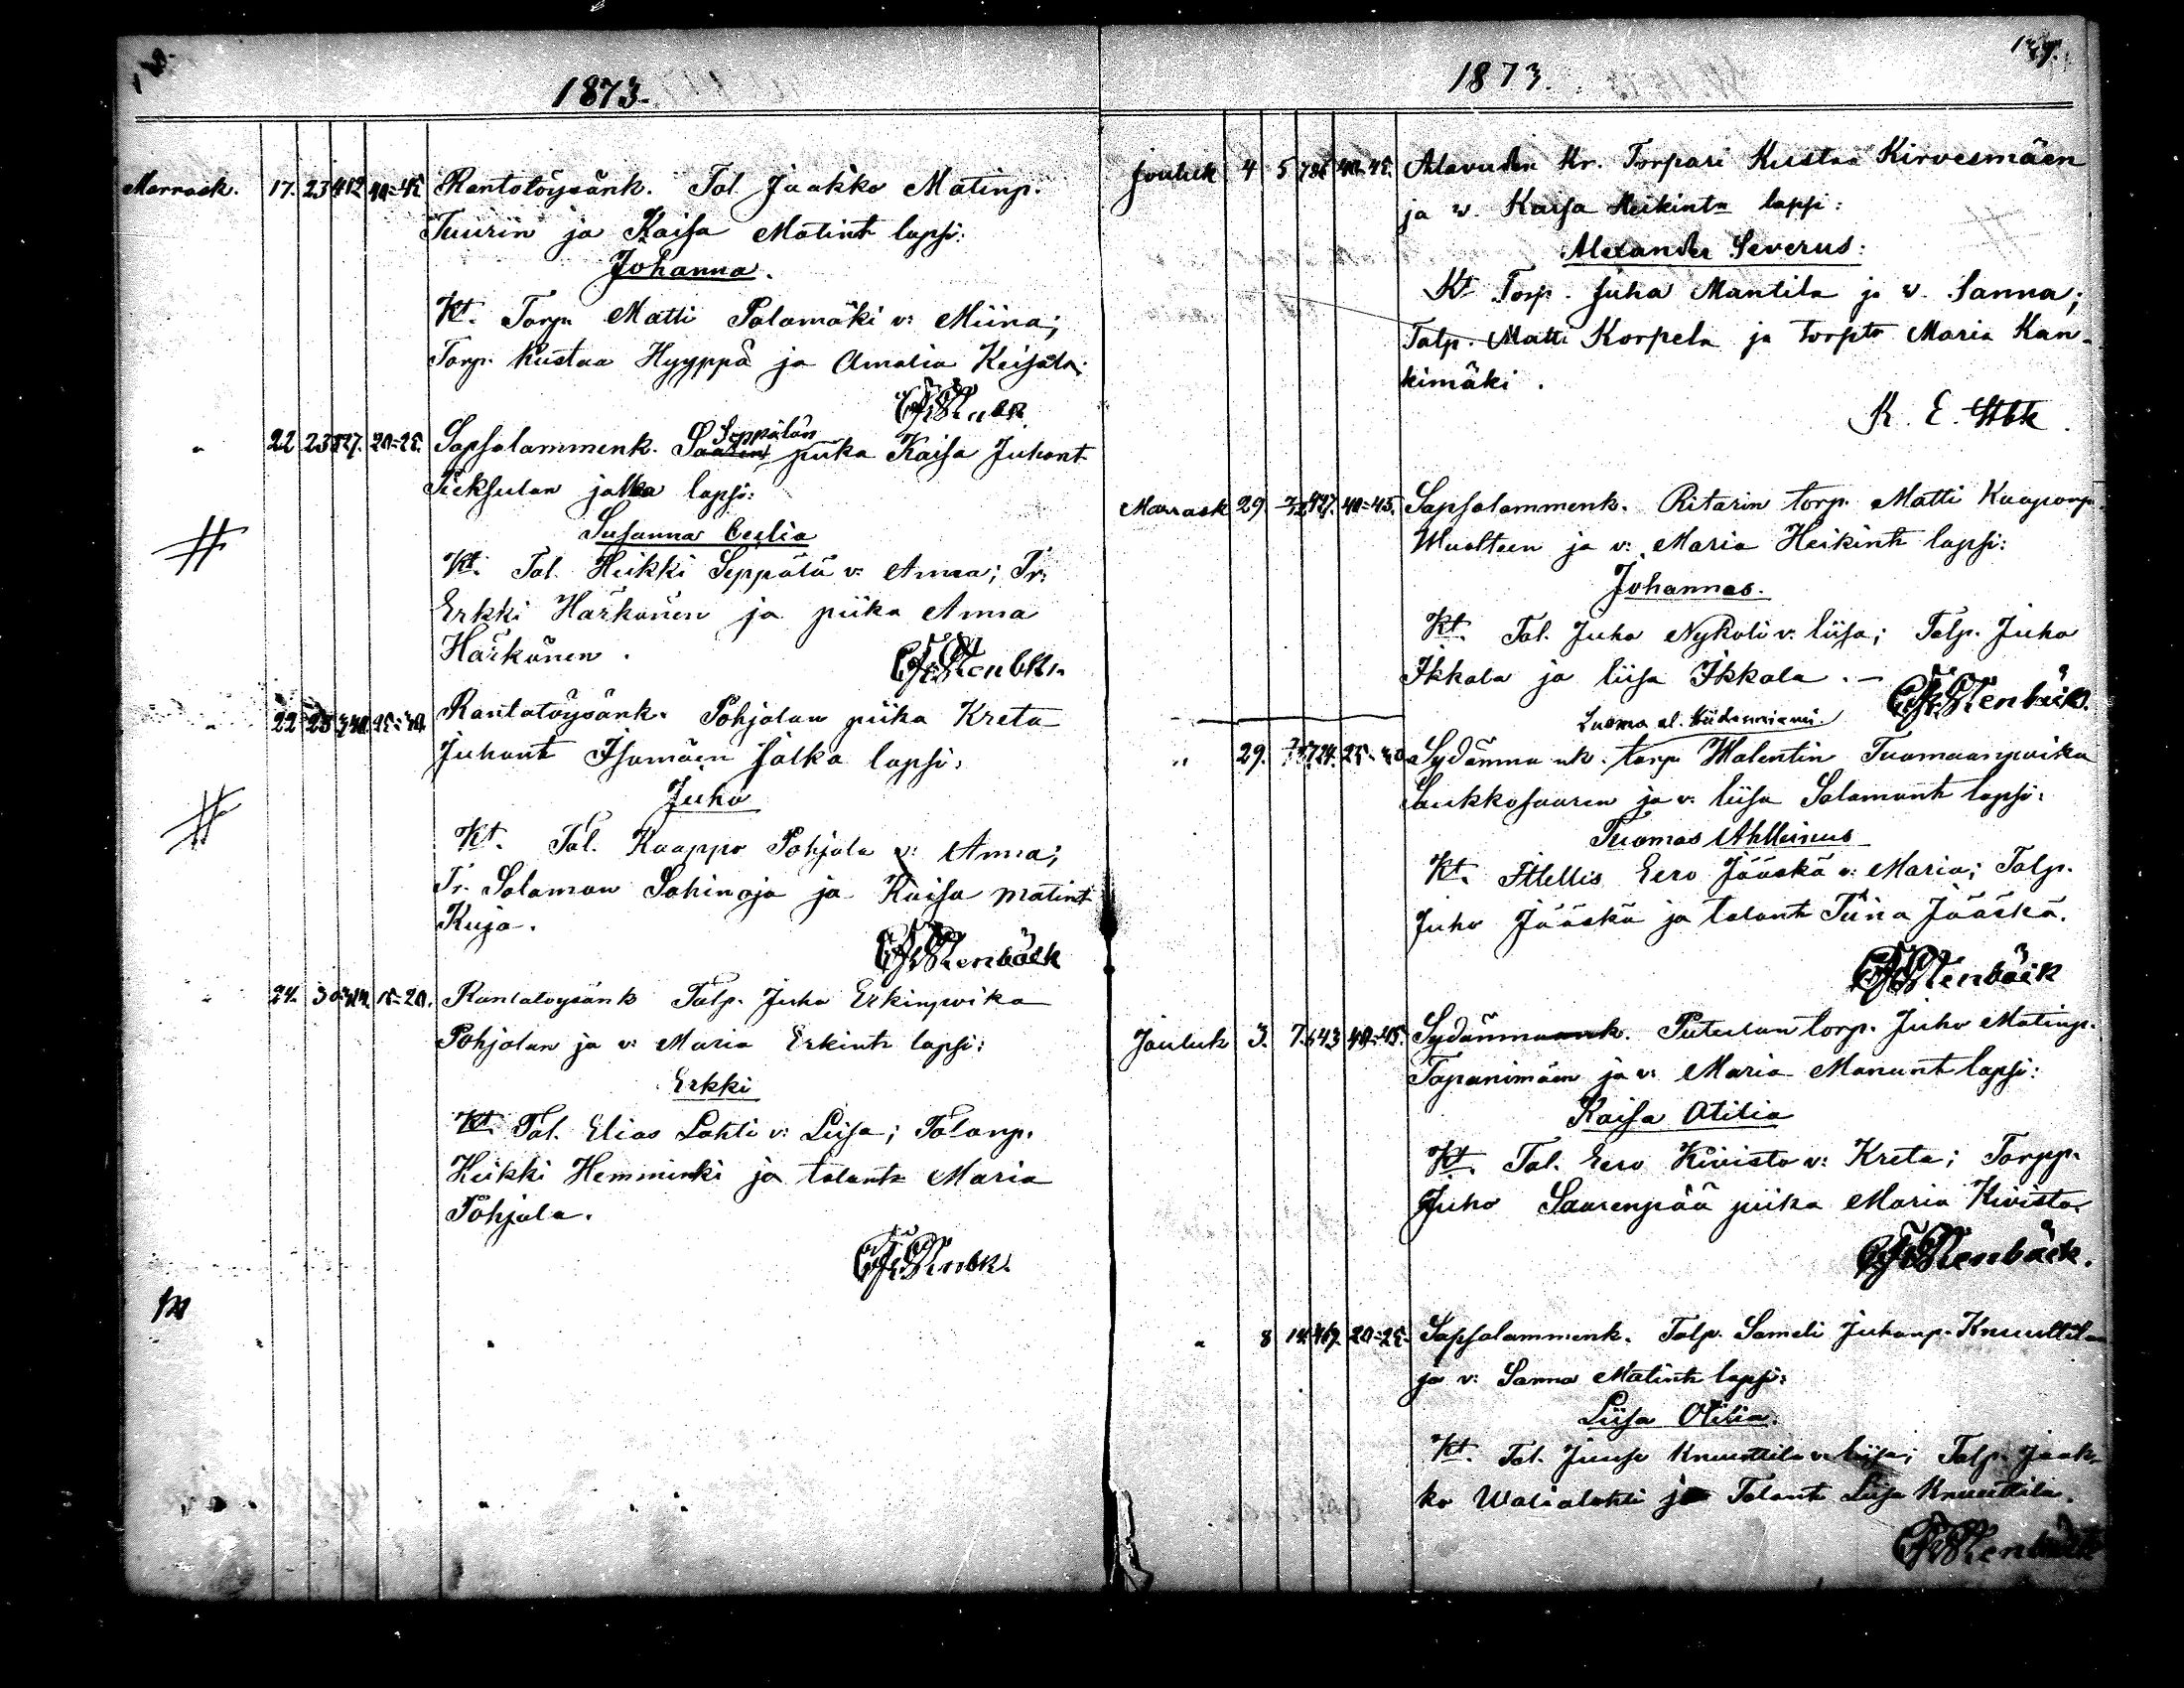 1873.
Marrask. 17. 23 412 40=45 Rantatöysänk. Tal. Jaakko Matinp.
Tuurin ja Kaisa Matint lapsi:
Johanna.
Kt. Torp. Matti Palomäki v: Miina;
Torp. Kustaa Hyyppä ja Amalia Keisala;
" 22 23 827. 20=25. Sapsalammenk. Seppälän piika Kaisa Juhont
Pieksulan jalka lapsi:
Susanna Cecilia
Kt. Tal. Heikki Seppälä v: Anna; Tr.
Erkki Härkönen ja piika Anna
Härkönen.
" 22 23 340. 25=30. Rantatöysänk. Pohjolan piika Kreta
Juhont Isomäen jalka lapsi:
Juho
Kt. Tal. Kaappo Pohjola v: Anna;
Tr. Salomon Sahinoja ja Kaisa Matint
Kuja.
Stenbäck
" 24. 30 15=20. Rantatöysänk Talp. Juho Erkinpoika
Pohjolan ja v: Maria Erkint lapsi:
Erkki
Kt. Tal. Elias Lahti v: Liisa; Talonp.
Heikki Hemminki ja talont Maria
Pohjola.
1873.
Jouluk 4 5 40=45. Alavuden Kr. Torpari Kustaa Kirvesmäen
ja v. Kaisa Heikinta lapsi:
Alexander Severus:
Kt Torp. Juha Mantila ja v. Sanna;
Talp. Matti Korpela ja torpto Maria Kan-
kimäki.
K. E. Stbk.
Marrask 29. 40=45. Sapsalammenk. Ritarin torp. Matti Kaaponp.
Wuolteen ja v: Maria Heikint lapsi:
Johannes.
Kt. Tal. Juho Nykoli v: Liisa; Talp. Juho
Ikkala ja Liisa Ikkala.
Stenbäck.
Luoma al. Hiidenniemi.
" 29. 25=30 Sydänmaank. torp Walentin Tuomaanpoika
Saukkosaaren ja v: Liisa Salomont lapsi:
Tuomas Ahllinus
Kt. Itellis Eero Jääskä v: Maria; Talp.
Juho Jääskä ja talont Tiina Jääskä.
Stenbäck
Jouluk 3. 7. 643 40=45. Sydänmaank. Putulan torp. Juho Matinp.
Tapanimäen ja v: Maria Manunt lapsi:
Kaisa Otilia
Kt. Tal. Eero Kivistö v: Kreta; Torpp.
Juho Saarenpää piika Maria Kivistö.
Stenbäck.
" 8 14 20=25. Sapsalammenk. Talp. Sameli Juhonp. Knuuttilan
ja v: Sanna Matint lapsi:
Liisa Otilia.
Kt. Tal. Juuse Knuuttila v: Liisa; Talp. Jaak-
ko Walialahti ja Talont Liisa Knuuttila.
Stenbäck